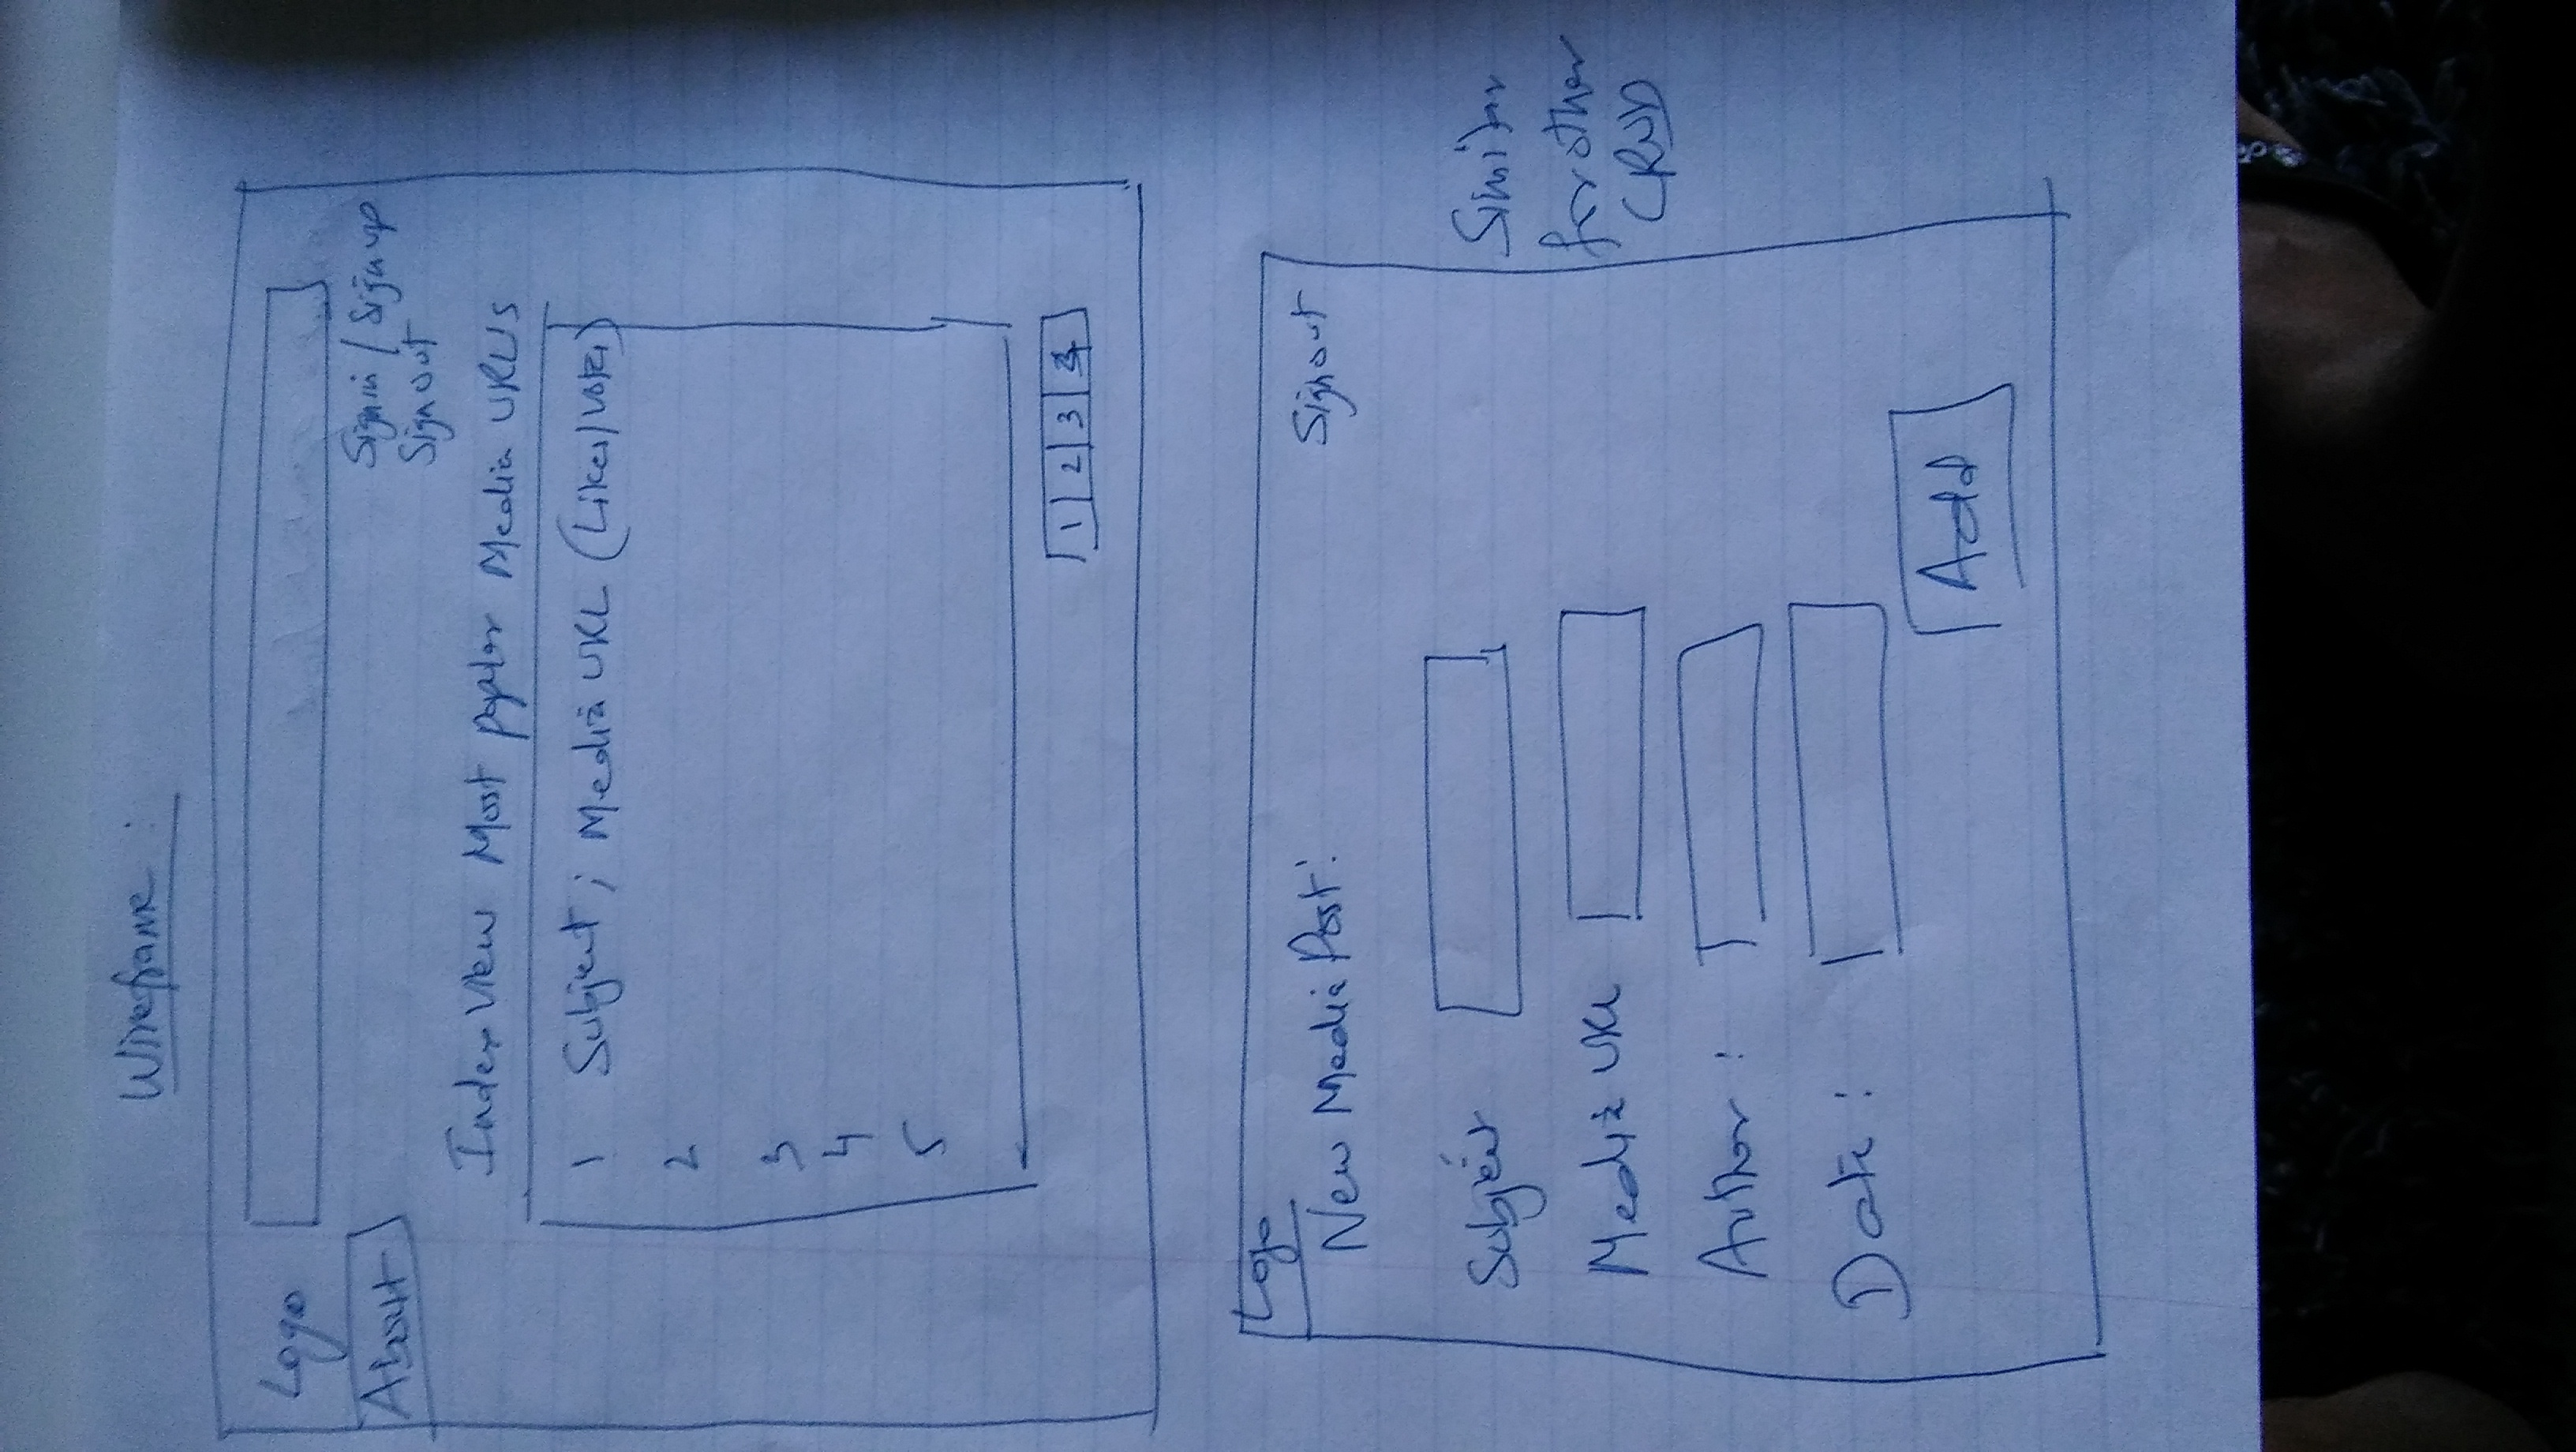 Wireframe :
Logo
About
Signin / Signup
Signout
Index View Most popular Media URL's
1 Subject ; Media URL (Likes/Votes)
2
3
4
5
1 2 3 4
Logo
New Media Post:
Signout
Subject
Media URL
Author :
Date :
Add
Similar
for other
CRUD